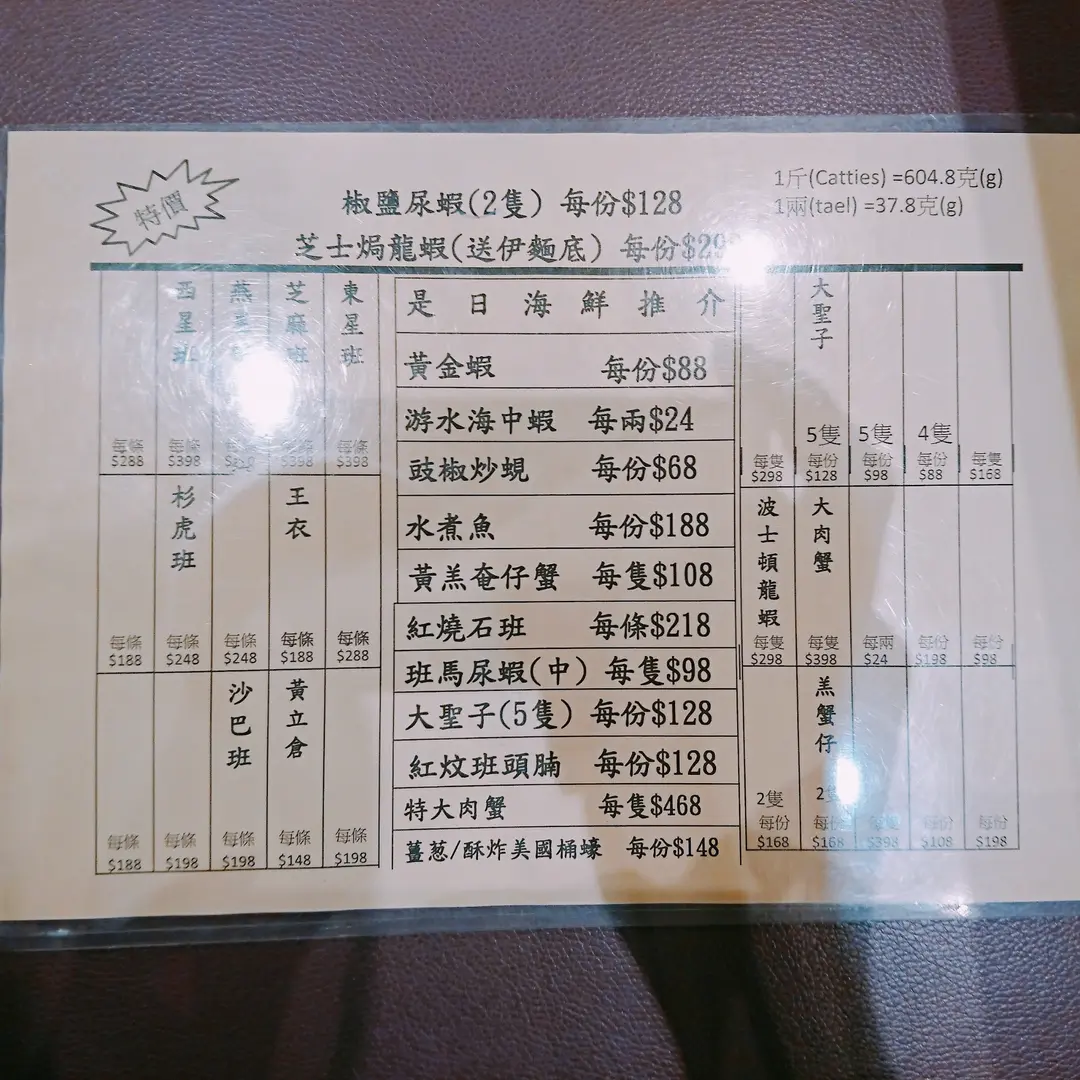 特價
椒鹽尿蝦(2隻) 每份$128
芝士焗龍蝦(送伊麵底) 每份
1斤(Catties) =604.8克(g)
1兩(tael) =37.8克(g)
每條 $288
西星班 每條 $398
每條
芝麻班 每條 $398
東星班 每條 $398
每條 $188
杉虎班 每條 $248
每條 $248
王衣 每條 $188
每條 $288
每條 $188
每條 $198
沙巴班 每條 $198
黃立倉 每條 $148
每條 $198
是日海鮮推介
黃金蝦 每份$88
游水海中蝦 每兩$24
豉椒炒蜆 每份$68
水煮魚 每份$188
黃羔奄仔蟹 每隻$108
紅燒石班 每條$218
班馬尿蝦(中) 每隻$98
大聖子(5隻) 每份$128
紅炆班頭腩 每份$128
特大肉蟹 每隻$468
薑葱/酥炸美國桶蠔 每份$148
每隻 $298
大聖子 5隻 每份 $128
5隻 每份 $98
4隻 每份 $88
每隻 $168
波士頓龍蝦 每隻 $298
大肉蟹 每隻 $398
每兩 $24
每份 $198
每份 $98
2隻 每份 $168
羔蟹仔 每份 $168
每隻 $398
每份 $108
每份 $198